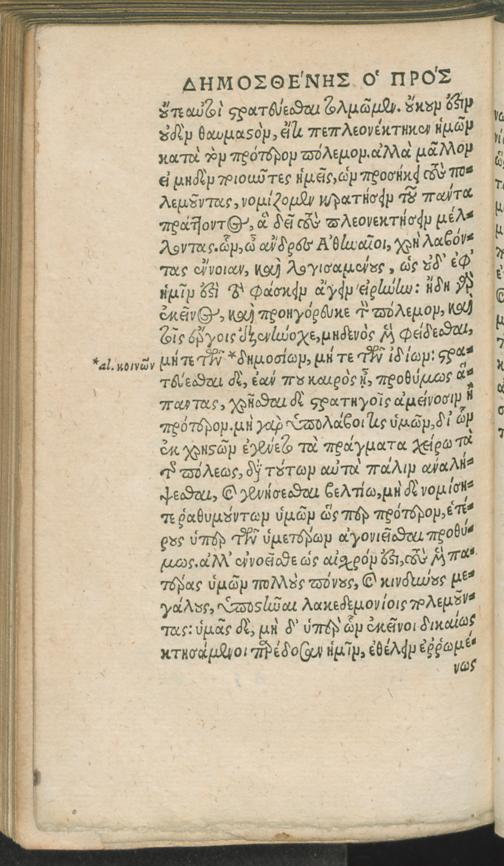 ΔΗΜΟΣΘΕ΄ΝΗΣ Ο῾ ΠΡΟ΄Σ
στρατεύεσθαι τολμῶμεν. οὔκουν ἐστὶν
οὐδὲν θαυμαστὸν, εἴτε πεπλεονέκτηκεν ἡμῶν
κατὰ τὸν πρότερον πόλεμον. ἀλλὰ μᾶλλον
εἰ μηδὲν ποιοῦντες ἡμεῖς, ὧν προσήκει τοὺς πο-
λεμοῦντας, νομίζομεν κρατήσειν τοῦ πάντα
πράττοντος, ἃ δεῖ τοὺς πλεονεκτήσειν μέλ-
λοντας. ὧν, ὦ ἄνδρες Ἀθηναῖοι, χρὴ λαβόν-
τας ἔννοιαν, καὶ λογισαμένους, ὡς οὐδ' ἐφ'
ἡμῖν ἐστὶ τὸ φάσκειν ἄγειν εἰρήνην: ἤδη γὰρ
ἐκεῖνος, καὶ προηγόρευκε τὸν πόλεμον, καὶ
τοῖς ἔργοις ἐξενήνοχε, μηδενὸς μὲν φείδεσθαι,
*al. κοινῶν
μήτε τῶν *δημοσίων, μήτε τῶν ἰδίων: στρα-
τεύεσθαι δὲ, ἐάν που καιρὸς ᾖ, προθύμως ἅ-
παντας, χρῆσθαι δὲ στρατηγοῖς ἀμείνοσιν ἢ
πρότερον. μὴ γὰρ ὑπολάβοι τις ὑμῶν, δι' ὧν
ἐκ χρηστῶν ἐγένετο τὰ πράγματα χείρω τὰ
τῆς πόλεως, διὰ τούτων αὐτὰ πάλιν ἀναλή-
ψεσθαι, καὶ γενήσεσθαι βελτίω, μὴ δὲ νομίση-
τε ῥαθυμούντων ὑμῶν ὥσπερ πρότερον, ἑτέ-
ρους ὑπὲρ τῶν ὑμετέρων ἀγονιεῖσθαι προθύ-
μως. ἀλλ' ἐννοεῖσθε ὡς αἰσχρόν ἐστι, τοὺς μὲν πα-
τέρας ὑμῶν πολλοὺς πόνους, καὶ κινδύνους με-
γάλους, ὑποστῆναι λακεδεμονίοις πολεμοῦν-
τας: ὑμᾶς δὲ, μὴ δ' ὑπὲρ ὧν ἐκεῖνοι δικαίως
κτησάμενοι παρέδοσαν ἡμῖν, ἐθέλειν ἐῤῥωμέ-
νως